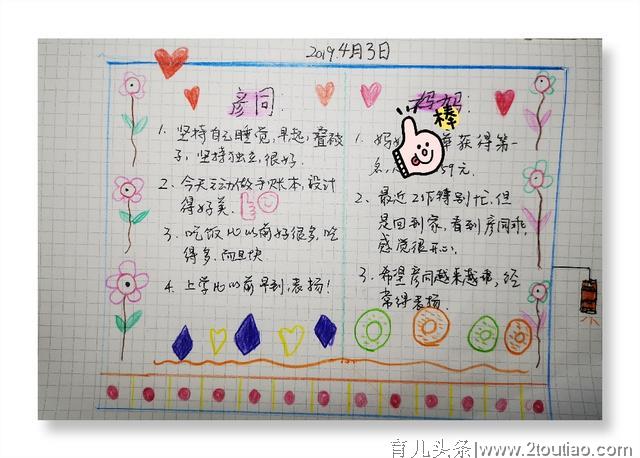 2019.4月3日
彦同:
1. 坚持自己睡觉,早起,叠被
子,坚持独立,很好.
2. 今天主动做手账本,设计
得好美.
3. 吃饭比以前好很多,吃
得多.而且快
4. 上学比以前早到,表扬!
妈妈:
棒
1. 妈 单获得第一
名, 59元.
2. 最近工作特别忙,但
是回到家,看到彦同乖,
感觉很开心.
3. 希望彦同越来越棒,经
常得表扬.
育儿头条|www.2toutiao.com